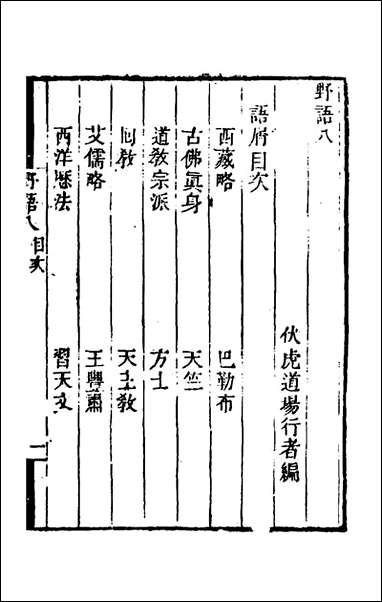 野語八
伏虎道場行者編
語屑目次
西藏略 巴勒布
古佛眞身 天竺
道教宗派 方士
回教 天主教
艾儒略 王豐肅
西洋厯法 習天文
野語八 目次 一